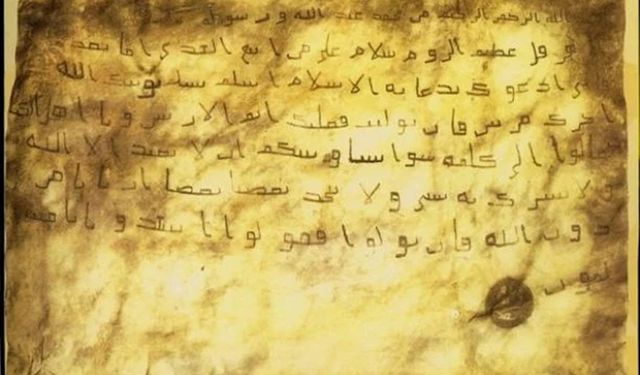 الله الرحمن الرحيم من محمد عبد الله ورسوله
هرقل عظيم الروم سلام على من اتبع الهدى اما بعد
ى ادعوك بدعاية الاسلام اسلم تسلم يوتك الله
اجرك مرتين فان توليت فعليك اثم الاريسين ويا اهل
تعالوا الى كلمة سوا بيننا وبينكم ان لا نعبد الا الله
ولا نشرك به شى ولا يتخذ بعضنا بعضا اربابا من
دون الله فان تولوا فقولوا